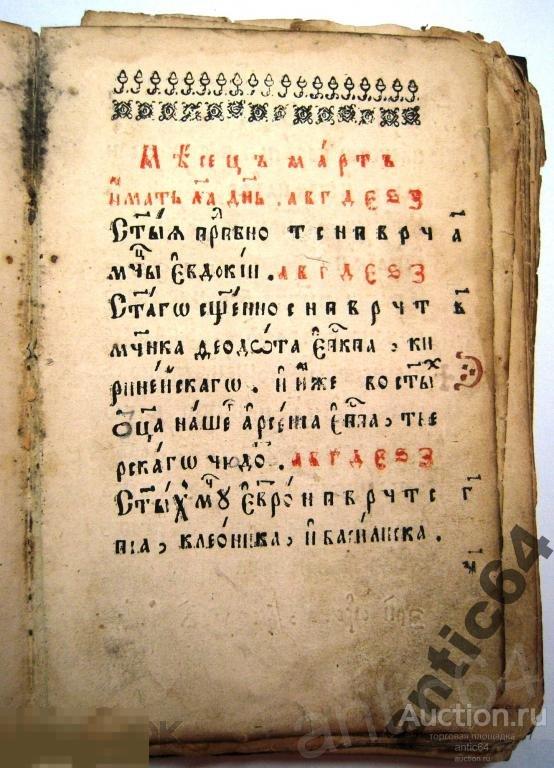 Мѣсецъ ма́ртъ
и҆мать л҃а дн҃ь. а в г д е ѕ з
Ст҃ы́ѧ прпⷣбно т с н п в р ч а҃
мч҃цы є҆ѵдокі́и. а в г д е ѕ з
Ст҃а́гѡ сщ҃енно с н п в р ч т в҃
мч҃ника ѳеодѡ́та є҆пкⷭпа, ки
рине́йскагѡ. и҆ и҆́же во ст҃ы́ⷯ
ѻ҆ц҃а на́шеⷢ҇ а҆рсе́нїа є҆пⷭпа, тве
рска́гѡ чюдоⷡ҇. а в г д е ѕ з
Ст҃ы́хъ мч҃ꙋ є҆ѵтро́ н п в р ч т с г҃
пїа, клео́ника, и҆ васили́ска.
antic64
Auction.ru
торговая площадка
antic64
auction.ru